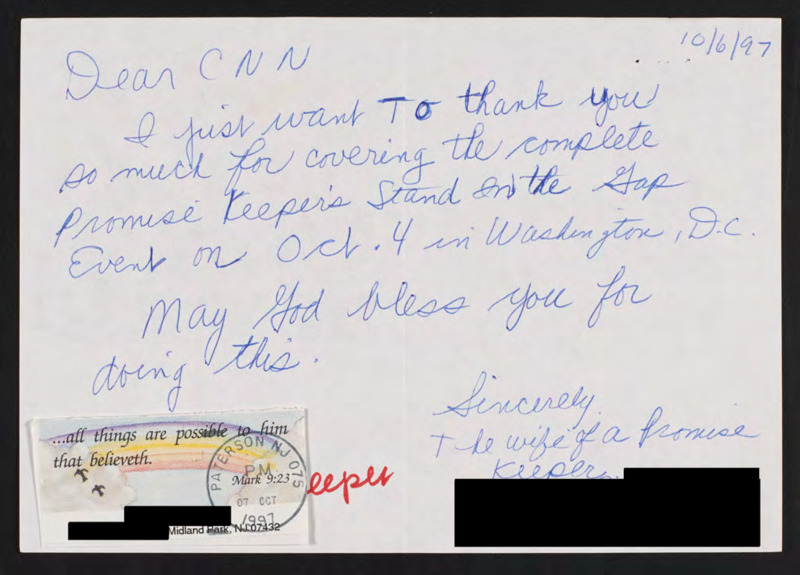 10/6/97
Dear CNN
I just want To thank you
so much for covering the complete
Promise Keeper's Stand In the Gap
Event on Oct. 4 in Washington, D.C.
May God bless you for
doing this.
Sincerely,
The wife of a Promise
Keeper
...all things are possible to him
that believeth.
Mark 9:23
PATERSON NJ 075
PM
07 OCT
1997
eeper
Midland Park, NJ 07432